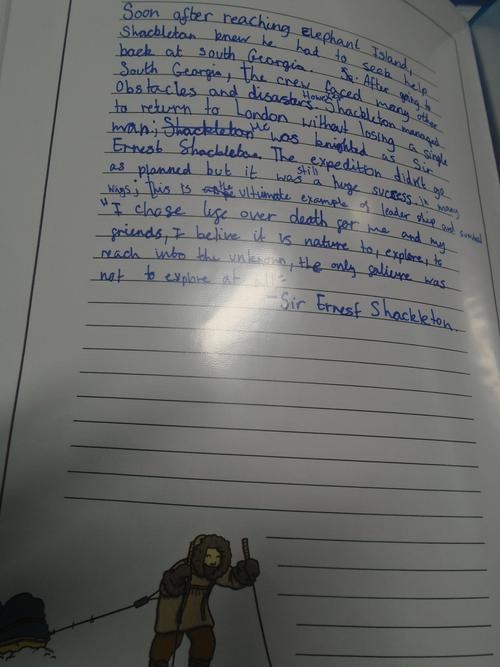 Soon after reaching Elephant Island,
Shackleton knew he had to seek help
back at south Georgia. So. After going to
South Georgia, The crew faced many other
Obstacles and disasters However Shackleton managed
to return to London without losing a single
man; Shackleton he was knighted as Sir
Ernest Shackleton. The expedition didn't go
as planned but it was still a huge success in many
ways; This is the ultimate example of leader ship and survival
"I chose life over death for me and my
friends, I belive it is nature to, explore, to
reach into the unknown, the only faliure was
not to explore at all."
-Sir Ernest Shackleton.